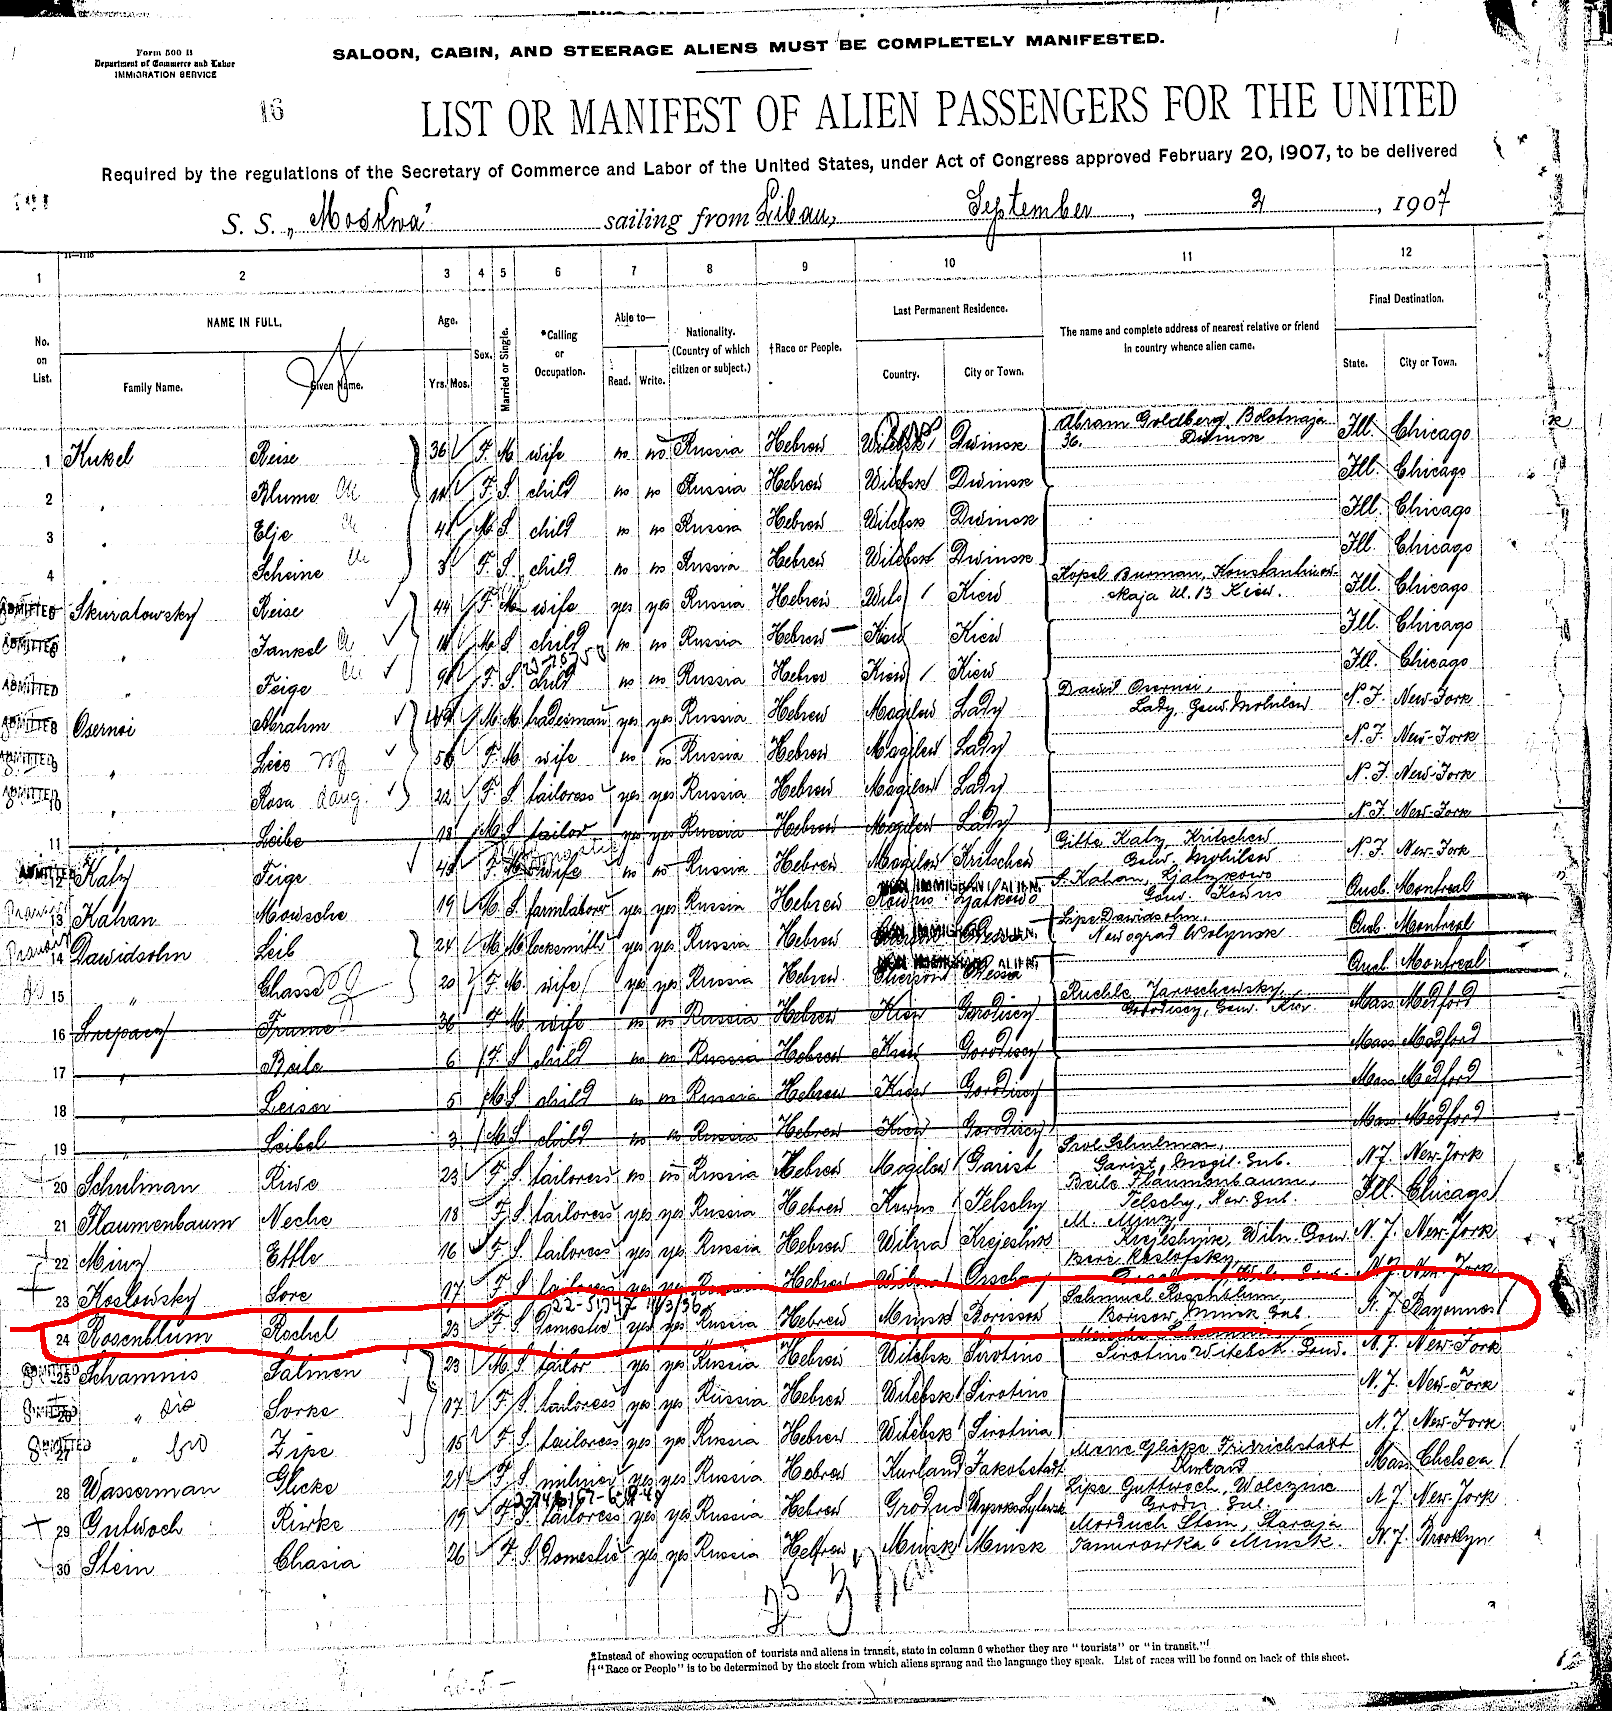 Form 500 B
Department of Commerce and Labor
IMMIGRATION SERVICE
SALOON, CABIN, AND STEERAGE ALIENS MUST BE COMPLETELY MANIFESTED.
16
LIST OR MANIFEST OF ALIEN PASSENGERS FOR THE UNITED
Required by the regulations of the Secretary of Commerce and Labor of the United States, under Act of Congress approved February 20, 1907, to be delivered
S. S. „Moskwa" sailing from Libau, September, 2, 1907
1 2 3 4 5 6 7 8 9 10 11 12
No. on List.
NAME IN FULL.
Family Name. Given Name.
Age. Yrs. Mos.
Sex.
Married or Single.
*Calling or Occupation.
Able to— Read. Write.
Nationality. (Country of which citizen or subject.)
†Race or People.
Last Permanent Residence. Country. City or Town.
The name and complete address of nearest relative or friend in country whence alien came.
Final Destination. State. City or Town.
1 Kukel Reise 36 F M wife no no Russia Hebrew Witebsk Dwinsk Abram Goldberg, Bolotnaja 36. Dwinsk Ill. Chicago
2 " Blume F S child no no Russia Hebrew Witebsk Dwinsk Ill. Chicago
3 " Elje 4 M S child no no Russia Hebrew Witebsk Dwinsk Ill. Chicago
4 Scheine 3 F S child no no Russia Hebrew Witebsk Dwinsk Ill. Chicago
ADMITTED Skuratowsky Reise 44 F M wife yes yes Russia Hebrew Kiew Kopel Burman, Konstantinowskaja Ul. 13 Kiew. Ill. Chicago
ADMITTED " Jankel M S child no no Russia Hebrew Kiew Kiew Ill. Chicago
ADMITTED " Feige 9 F S child no no Russia Hebrew Kiew Kiew Ill. Chicago
ADMITTED 8 Osernoi Abrahm M M tradesman yes yes Russia Hebrew Mogilew Lady Dawid Osernoi, Lady, Gouv. Mohilew N. J. New-York
ADMITTED 9 " 56 F M wife no no Russia Hebrew Mogilew Lady N. J. New-York
ADMITTED 10 " Rosa daug. 22 F S tailoress yes yes Russia Hebrew Mogilew Lady N. J. New-York
11 Leibe 18 M S tailor yes yes Russia Hebrew Mogilew Lady N. J. New-York
ADMITTED 12 Katz Feige 48 F M wife no no Russia Hebrew Mogilew Kritschew Gitte Katz, Kritschew Gouv. Mohilew N. J. New-York
13 Kahan Mowsche 19 M S farmlaborer yes yes Russia Hebrew Kowno NON IMMIGRANT ALIEN S. Kahan, Gouv. Kowno Queb. Montreal
14 Dawidsohn Leib 24 M M locksmith yes yes Russia Hebrew NON IMMIGRANT ALIEN Lipe Dawidsohn, Nowograd Wolynsk Queb. Montreal
15 " Chasse 20 F M wife yes yes Russia Hebrew Cherson Odessa NON IMMIGRANT ALIEN Queb. Montreal
16 Frume 36 F M wife no no Russia Hebrew Kiew Gorodiscy Ruchle Jaroschewsky, Gorodiscy, Gouv. Kiew Mass Medford
17 " Beile 6 F S child no no Russia Hebrew Kiew Gorodiscy Mass Medford
18 " Leiser 5 M S child no no Russia Hebrew Kiew Gorodiscy Mass Medford
19 " Leibel 3 M S child no no Russia Hebrew Kiew Gorodiscy Mass Medford
20 Schulman Riwe 23 F S tailoress no no Russia Hebrew Mogilew Garist Srol Schulman, Garist, Mogil. Gub. N. J. New-York
21 Flaumenbaum Neche 18 F S tailoress yes yes Russia Hebrew Kowno Telschy Beile Flaumenbaum, Telschy, Kow. Gub. Ill. Chicago
22 Minz Ettle 16 F S tailoress yes yes Russia Hebrew Wilna M. Minz, Wiln. Gouv. N. J. New-York
23 Koslowsky Sore 17 F S tailoress yes yes Russia Hebrew Wilna Osschany Wiln. Gub. N. J. New-York
22-51747 11/3/36
24 Rosenblum Rochel 23 F S Domestic yes yes Russia Hebrew Minsk Borissow Schmuel Roschblum, Borisow, Minsk Gub. N. J. Bayonne
25 Schamnis Salmen 23 M S tailor yes yes Russia Hebrew Witebsk Sirotino Sirotino Witebsk Gouv. N. J. New-York
26 " sis Sorke 17 F S tailoress yes yes Russia Hebrew Witebsk Sirotino N. J. New-York
ADMITTED 27 " Zipe 15 F S tailoress yes yes Russia Hebrew Witebsk Sirotina N. J. New-York
28 Wasserman Glicke 21 F S yes yes Russia Hebrew Kurland Jakobstadt Fridrichstadt Kurland Mass Chelsea
29 Gutwoch Rirke 19 F S tailoress yes yes Russia Hebrew Grodno Lipe Guttwoch, Wolczyne Grodn. Gub. N. J. New-York
30 Stein Chasia 26 F S Domestic yes yes Russia Hebrew Minsk Minsk Morduch Stein, Staraja 6 Minsk. N. J. Brooklyn
*Instead of showing occupation of tourists and aliens in transit, state in column 6 whether they are "tourists" or "in transit."
†"Race or People" is to be determined by the stock from which aliens sprang and the language they speak. List of races will be found on back of this sheet.